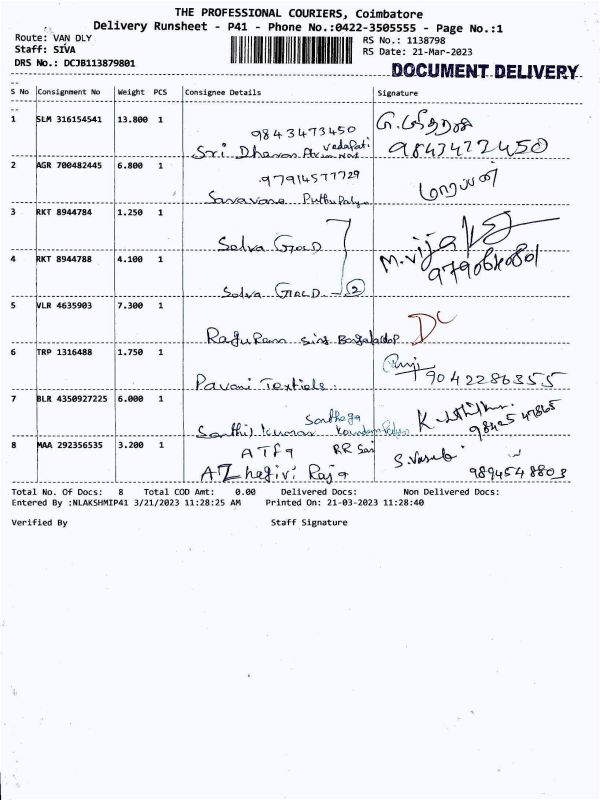 THE PROFESSIONAL COURIERS, Coimbatore
Delivery Runsheet - P41 - Phone No.:0422-3505555 - Page No.:1
Route: VAN DLY RS No.: 1138798
Staff: SIVA RS Date: 21-Mar-2023
DRS No.: DCJB113879801
DOCUMENT DELIVERY
S No Consignment No Weight PCS Consignee Details Signature
1 SLM 316154541 13.800 1
9843473450
Sri Dharan
2 AGR 700482445 6.800 1
97914577729
Saravana
3 RKT 8944784 1.250 1
Selva Gold
4 RKT 8944788 4.100 1
M.vija
Selva Gold - 2
5 VLR 4635903 7.300 1
Raguram DC
6 TRP 1316488 1.750 1
Pavani Textiles. 9042286355
7 BLR 4350927225 6.000 1
Senthil kumar
8 MAA 292356535 3.200 1
RR Sai
9894548803
Total No. Of Docs: 8 Total COD Amt: 0.00 Delivered Docs: Non Delivered Docs:
Entered By :NLAKSHMIP41 3/21/2023 11:28:25 AM Printed On: 21-03-2023 11:28:40
Verified By Staff Signature